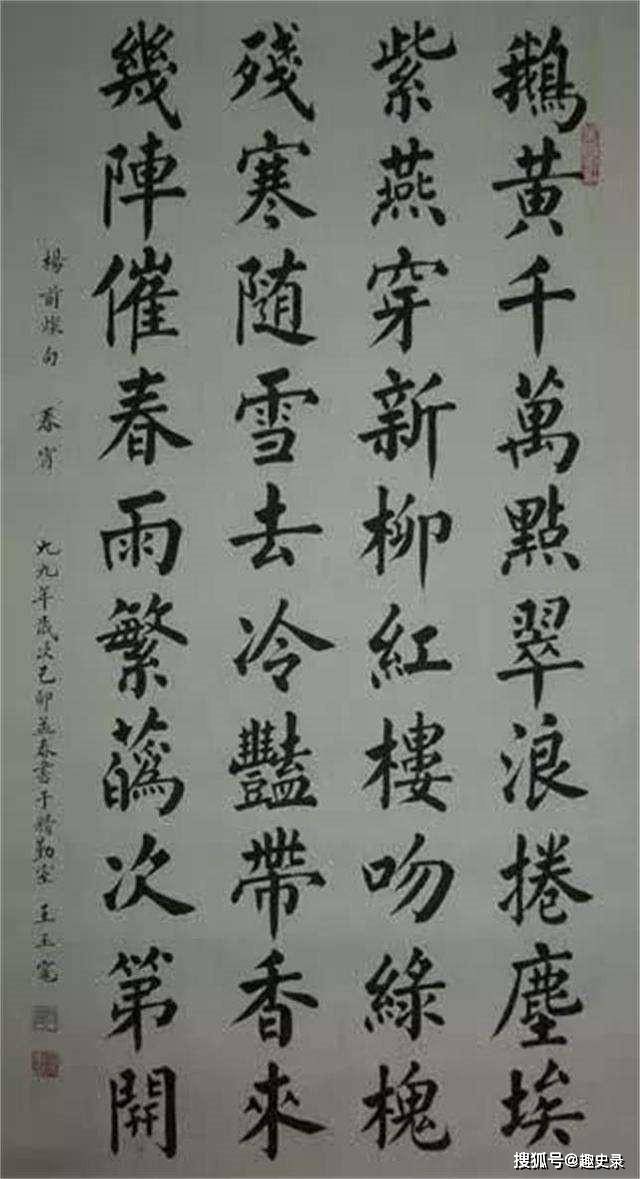 鵝黃千萬點翠浪捲塵埃
紫燕穿新柳紅樓吻綠槐
殘寒隨雪去冷豔帶香來
幾陣催春雨繁蘤次第開
楊前燦句 春宵 九九年歲次己卯孟春書于精勤室 王玉寬
搜狐号@趣史录